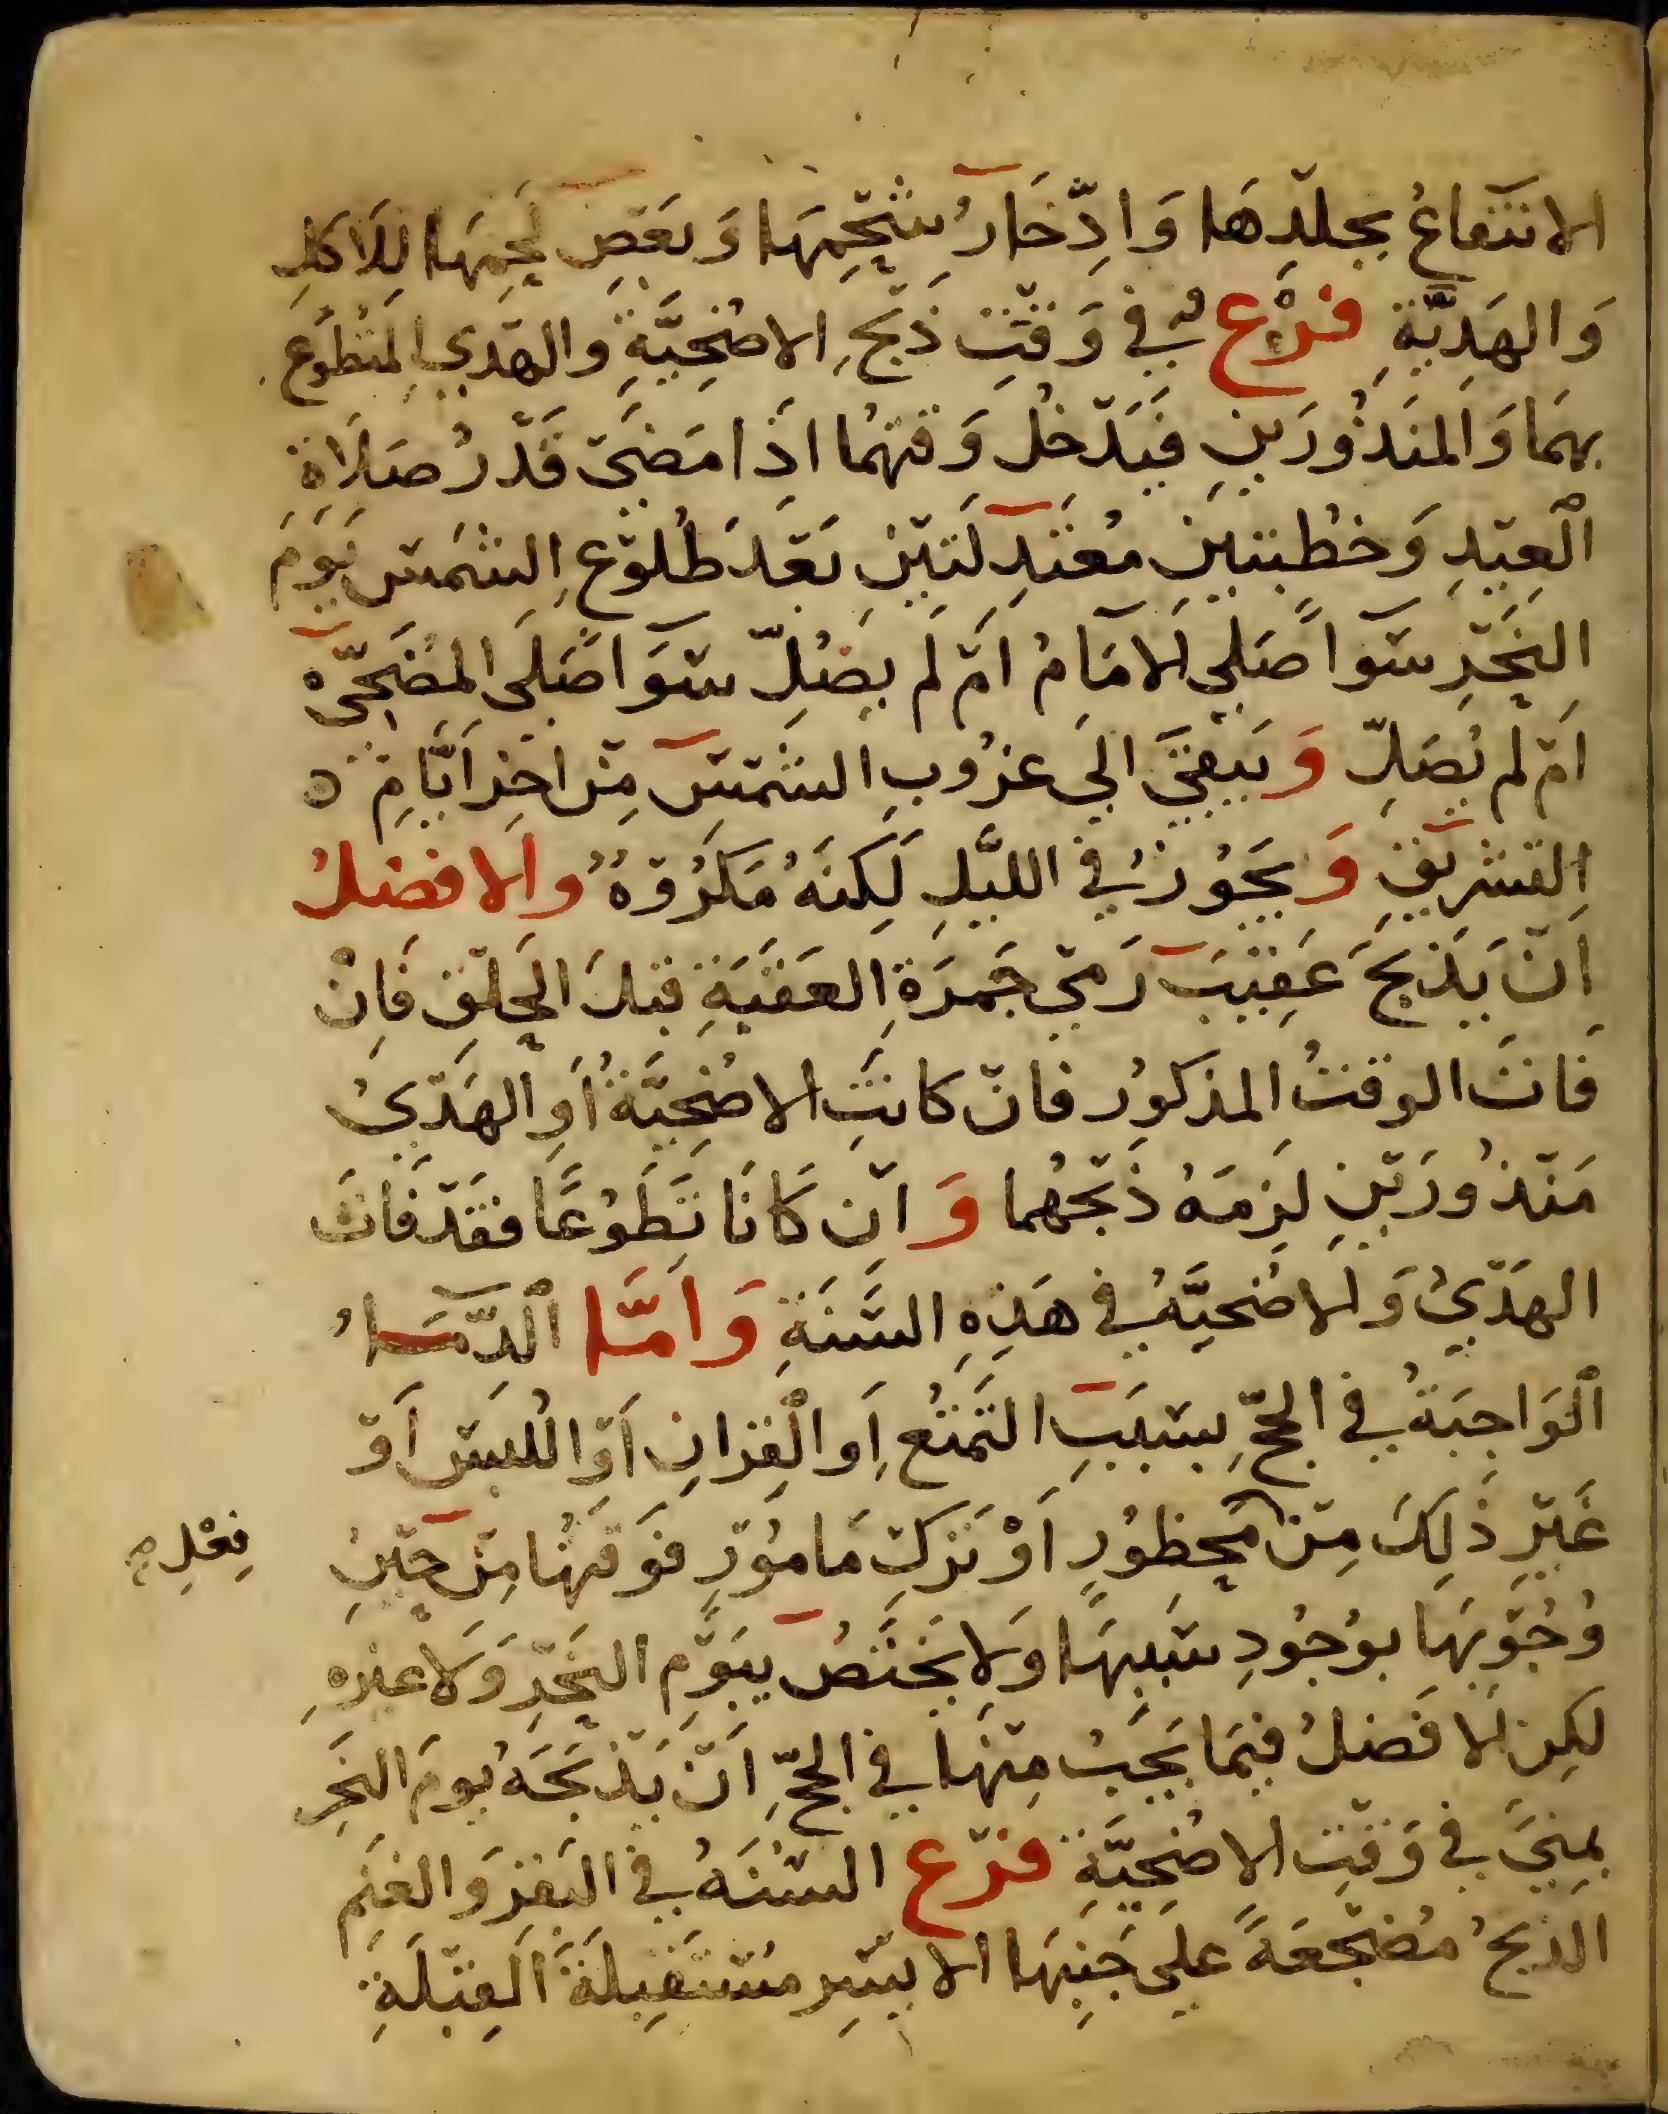 الانتفاعُ بجلدِهَا وَادِّخَارُ شحْمِهَا وَبَعْضِ لَحمِهَا لِلاَكلِ
وَالهَدِيَّةِ فرْعٌ في وَقتِ ذَبحِ الاضْحِيَّةِ والهَدي المتطوّع
بهمَا وَالمنذُورَينِ فيَدْخلُ وَقتهُما اذَا مَضىَ قَدْرُ صَلَاةِ
الْعِيْدِ وَخطْبتيَنِ مُعتَدِلَتيْنِ بَعْدَ طُلُوْعِ الشمْسِ يَوْمَ
النحْرِ سَوآ صَلي الامَامُ امْ لَم يصَلِّ سَوَآ صَلَى المضَحِّيْ
امْ لم يُصَلِّ وَيَبقىَ الىَ غرُوبِ الشَمْسِ مِنْ اخِرِ اَيَّامِ ه
التشْرِيْقِ وَيجَوُزُ في الليْلِ لَكِنهُ مَكرُوْهٌ والافضلُ
اَنْ يَذبحَ عَقِيْبَ رَميْ جَمرَةِ العَقَبَةِ قبلَ الحَلْقِ فَاِنْ
فَاتَ الوقتُ المذكوُر فانْ كانتِ الاضْحِيَّةُ اَوِ الهَدْيُ
مَنْذُورَيْنِ لَزِمَهُ ذَبْحُهُما وَانْ كَانَا تَطَوُعًا فقدْ فَاتَ
الهَدْيُ وَالاضُحيَّهُ في هَذِهِ السَّنَةِ وَاَمَّا الْدِّمَاءُ
الْوَاجِبَةُ في الحجِّ بِسَبَبِ التمَتُعِ اَوِ الْقِرَانِ اَوْ اللُبسِ اَوْ
غَيْرِ ذَلِكَ مِنْ مَحظوُرٍ اَوْ تَركِ مَامُوْرٍ فَوَقتُهَا مِنْ حيْنِ
فِعْلِ
وُجُوْبِهَا بوُجُودِ سَبَبِهَا وَلا يَختَصُ بيَوْمِ النحْرِ وَلاغيرهِ
لكِن الافَضلُ فيمَا يَجَبُ مِنْهَا في الحجِّ اَنْ يَذبحَهُ يومَ النحَرِ
بمِنىَ في وَقتِ الاضُحِيَّةِ فرْع السُنَهُ في البَقرِ وَالغنَمِ
الذبحُ مُضْجَعَةً عَلىَ جَنبِهَا الايْسَرِ مُسْتَقبِلَةَ الْقِبْلَةِ